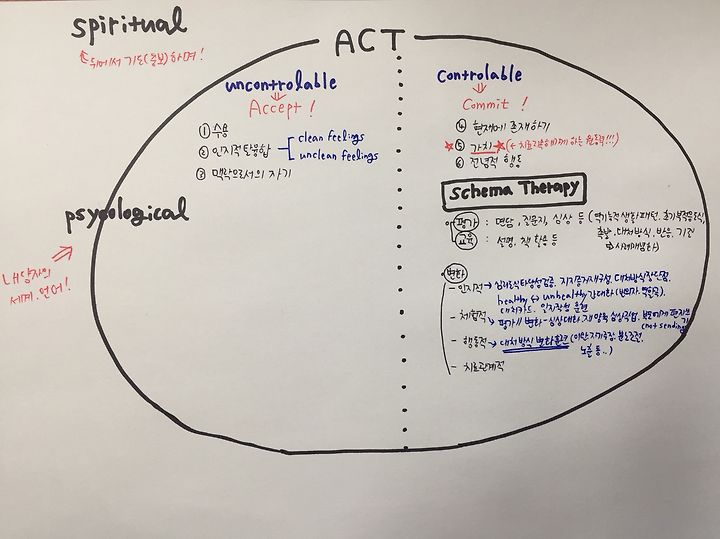 spiritual
뒤에서 기도(중보)하며!
ACT
uncontrolable
Accept !
① 수용
② 인지적 탈융합
clean feelings
unclean feelings
③ 맥락으로서의 자기
psycological
내담자의
세계.언어!
Controlable
Commit !
④ 현재에 존재하기
⑤ 가치 (← 치료 지속하게 하는 원동력!!!)
⑥ 전념적 행동
Schema Therapy
평가 : 면담, 질문지, 심상 등 (역기능적 생활패턴, 초기부적응도식,
촉발, 대처방식, 반응, 기질
⇒ 사례개념화)
교육 : 설명, 책 활용 등
변화
- 인지적 → 심리도식 타당성검증, 지지증거 재구성, 대처방식 장단점,
healthy ↔ unhealthy 간 대화
대처카드,
- 체험적 → 평가 // 변화 - 심상대화, 재양육 심상작업, 부모에게 편지쓰기
(not sending)
- 행동적 - 대처방식 변화훈련 (이완, 자기주장, 분노조절,
노출 등..)
- 치료관계적